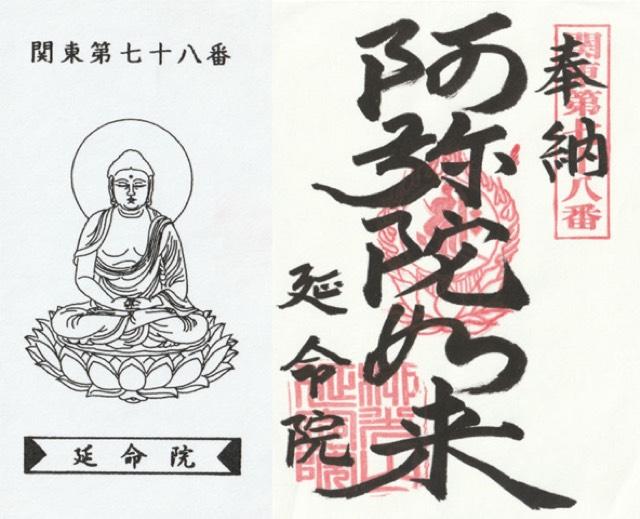 関東第七十八番
延命院
奉納
関東第七十八番
阿弥陀如来
延命院